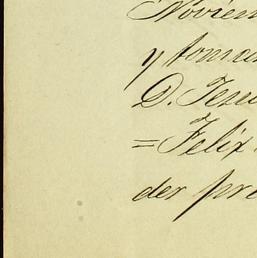 Noviem
y toma
D. Ten
=Felix
der pre